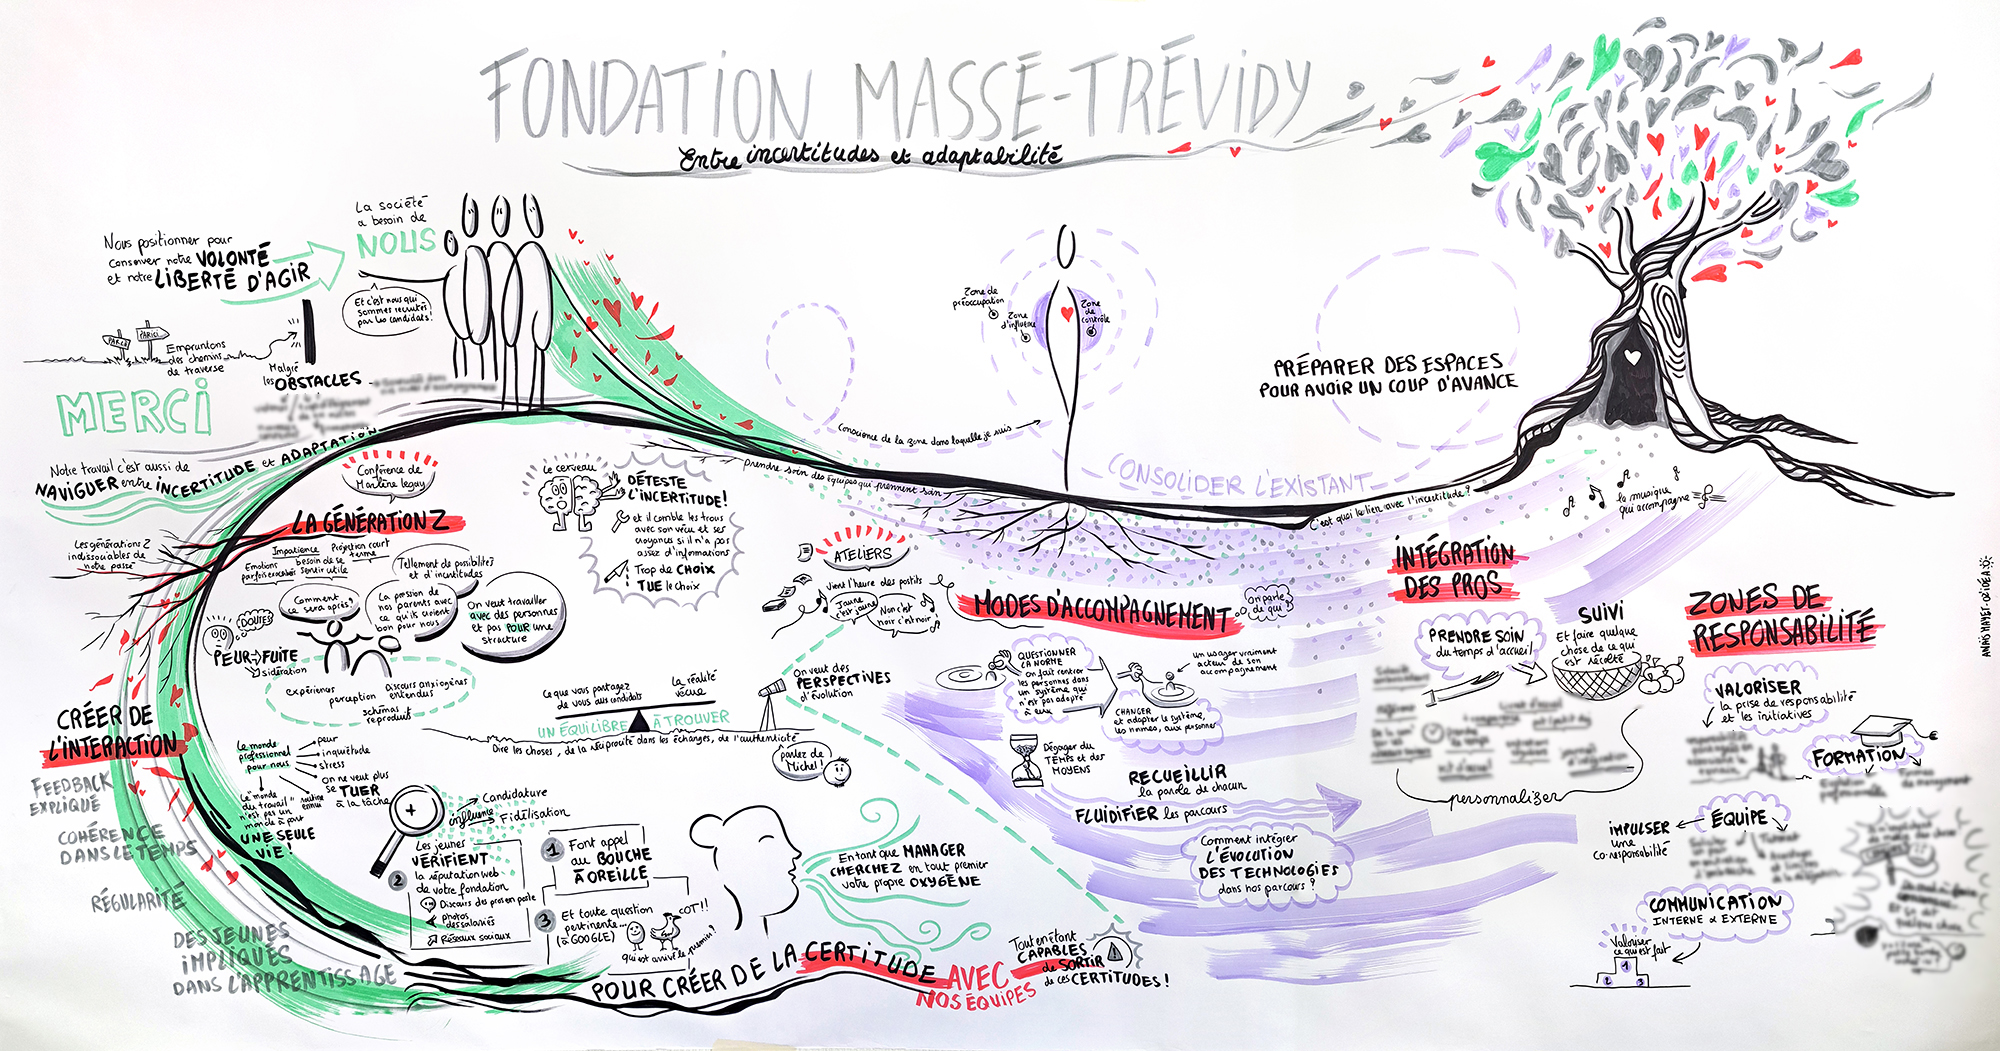 FONDATION MASSÉ-TRÉVIDY
Entre incertitudes et adaptabilité
La société
a besoin de
NOUS
Nous positionner pour
conserver notre VOLONTÉ
et notre LIBERTÉ D'AGIR
Et c'est nous qui
sommes recrutés
par les candidats!
PAR LÀ
PAR ICI
Empruntons
des chemins
de traverse
Malgré
les OBSTACLES
MERCI
Notre travail c'est aussi de
NAVIGUER entre INCERTITUDE et ADAPTATION
Conférence de
Marlène legay
LA GÉNÉRATION Z
Les générations Z
indissociables de
notre passé
Impatience
Projection court
terme
Emotions
parfois exacerbées
besoin de se
sentir utile
Tellement de possibilités
et d'incertitudes
Comment
ce sera après?
La pression de
nos parents avec
ce qu'ils savent
bon pour nous
On veut travailler
avec des personnes
et pas POUR une
structure
DOUTES
PEUR → FUITE
sidération
expériences
perception
Discours anxiogènes
entendus
schémas
reproduits
CRÉER DE
L'INTERACTION
FEEDBACK
EXPLIQUÉ
COHÉRENCE
DANS LE TEMPS
RÉGULARITÉ
DES JEUNES
IMPLIQUÉS
DANS L'APPRENTISSAGE
Le monde
professionnel
pour nous
peur
inquiétude
stress
On ne veut plus
se TUER
à la tâche
routine
ennui
Le "monde
du travail"
n'est pas un
monde à part
UNE SEULE
VIE!
Le cerveau
DÉTESTE
L'INCERTITUDE!
et il comble les trous
avec son vécu et ses
croyances si il n'a pas
assez d'informations
Trop de CHOIX
TUE le choix
Ce que vous partagez
de vous aux candidats
La réalité
vécue
UN ÉQUILIBRE À TROUVER
Dire les choses, de la réciprocité dans les échanges, de l'authenticité
On veut des
PERSPECTIVES
d'évolution
parlez de
Michel!
influence
Candidature
Fidélisation
Les jeunes
VÉRIFIENT
la réputation web
de votre fondation
2
Discours des pros en poste
photos
des salariés
Réseaux sociaux
1
Font appel
au BOUCHE
À OREILLE
3
Et toute question
pertinente...
(à GOOGLE)
COT!!
qui est arrivé le premier?
En tant que MANAGER
CHERCHEZ en tout premier
votre propre OXYGÈNE
POUR CRÉER DE LA CERTITUDE AVEC
NOS ÉQUIPES
Tout en étant
CAPABLES
de SORTIR
de ces CERTITUDES!
prendre soin des équipes qui prennent soin
Zone de
préoccupation
Zone
d'influence
Zone
de
contrôle
Conscience de la zone dans laquelle je suis
CONSOLIDER L'EXISTANT
PRÉPARER DES ESPACES
POUR AVOIR UN COUP D'AVANCE
C'est quoi le lien avec l'incertitude?
la musique
qui accompagne
ATELIERS
Vient l'heure des postits
Jaune
c'est jaune
Non c'est
noir c'est noir
MODES D'ACCOMPAGNEMENT
On parle
de qui?
QUESTIONNER
LA NORME
On fait rentrer
des personnes dans
un système qui
n'est pas adapté
à eux
CHANGER
et adapter le système,
les normes, aux personnes
un usager vraiment
acteur de son
accompagnement
Dégager du
TEMPS et des
MOYENS
RECUEILLIR
la parole de chacun
FLUIDIFIER les parcours
Comment intégrer
L'ÉVOLUTION
DES TECHNOLOGIES
dans nos parcours?
INTÉGRATION
DES PROS
PRENDRE SOIN
du temps d'accueil
SUIVI
Et faire quelque
chose de ce qui
est récolté
personnaliser
ZONES DE
RESPONSABILITÉ
VALORISER
la prise de responsabilité
et les initiatives
FORMATION
ÉQUIPE
IMPULSER
une
co-responsabilité
COMMUNICATION
INTERNE & EXTERNE
Valoriser
ce qui est fait
1
2
3